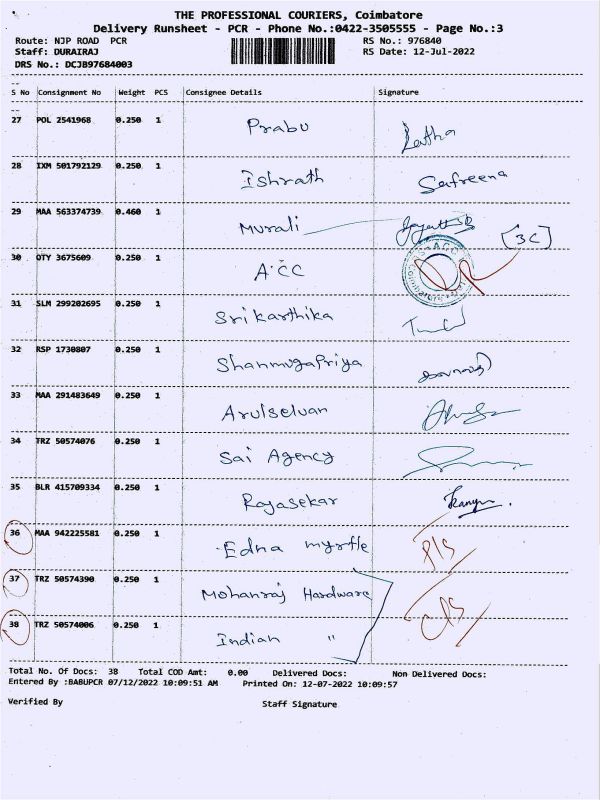 THE PROFESSIONAL COURIERS, Coimbatore
Delivery Runsheet - PCR - Phone No.:0422-3505555 - Page No.:3
Route: NJP ROAD PCR RS No.: 976840
Staff: DURAIRAJ RS Date: 12-Jul-2022
DRS No.: DCJB97684003
S No Consignment No Weight PCS Consignee Details Signature
27 POL 2541968 0.250 1 Prabu Latha
28 IXM 501792129 0.250 1 Ishrath Safreena
29 MAA 563374739 0.460 1 Murali
[3C]
30 QTY 3675609 0.250 1 A.CC
31 SLM 299202695 0.250 1 Srikarthika
32 RSP 1730807 0.250 1 Shanmugapriya
33 MAA 291483649 0.250 1 Arulselvan
34 TRZ 50574076 0.250 1 Sai Agency
35 BLR 415709334 0.250 1 Rajasekar
36 MAA 942225581 0.250 1 Edna myrtle P/S
37 TRZ 50574390 0.250 1 Mohanraj Hardware
38 TRZ 50574006 0.250 1 Indian "
Total No. Of Docs: 38 Total COD Amt: 0.00 Delivered Docs: Non Delivered Docs:
Entered By :BABUPCR 07/12/2022 10:09:51 AM Printed On: 12-07-2022 10:09:57
Verified By Staff Signature